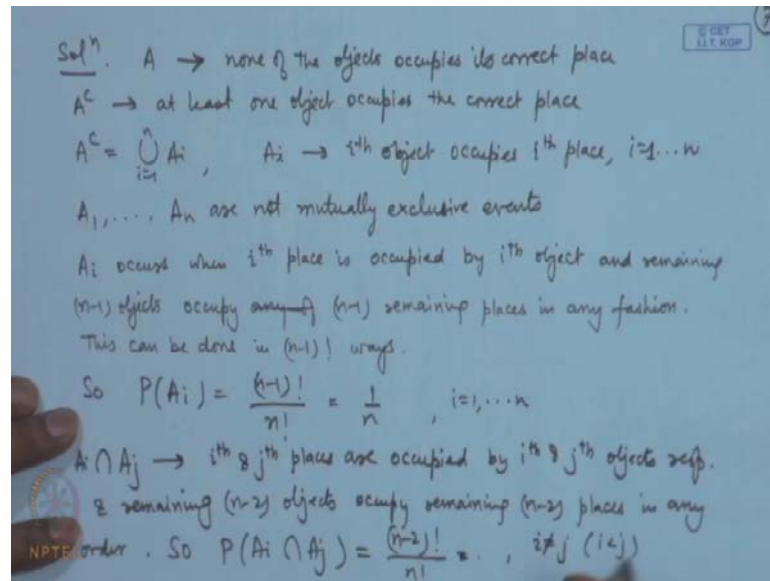 7
© CET
I.I.T. KGP
Solⁿ. A → none of the objects occupies its correct place
Aᶜ → at least one object occupies the correct place
Aᶜ = ⋃ᵢ₌₁ⁿ Ai , Ai → iᵗʰ object occupies iᵗʰ place, i=1...n
A₁, ...., An are not mutually exclusive events
Ai occurs when iᵗʰ place is occupied by iᵗʰ object and remaining
(n-1) objects occupy (n-1) remaining places in any fashion.
This can be done in (n-1)! ways.
So P(Ai) = (n-1)!/n! = 1/n , i=1,...n
Ai ∩ Aj → iᵗʰ & jᵗʰ places are occupied by iᵗʰ & jᵗʰ objects resp.
& remaining (n-2) objects occupy remaining (n-2) places in any
order. So P(Ai ∩ Aj) = (n-2)!/n! = . , i≠j (i<j)
NPTEL